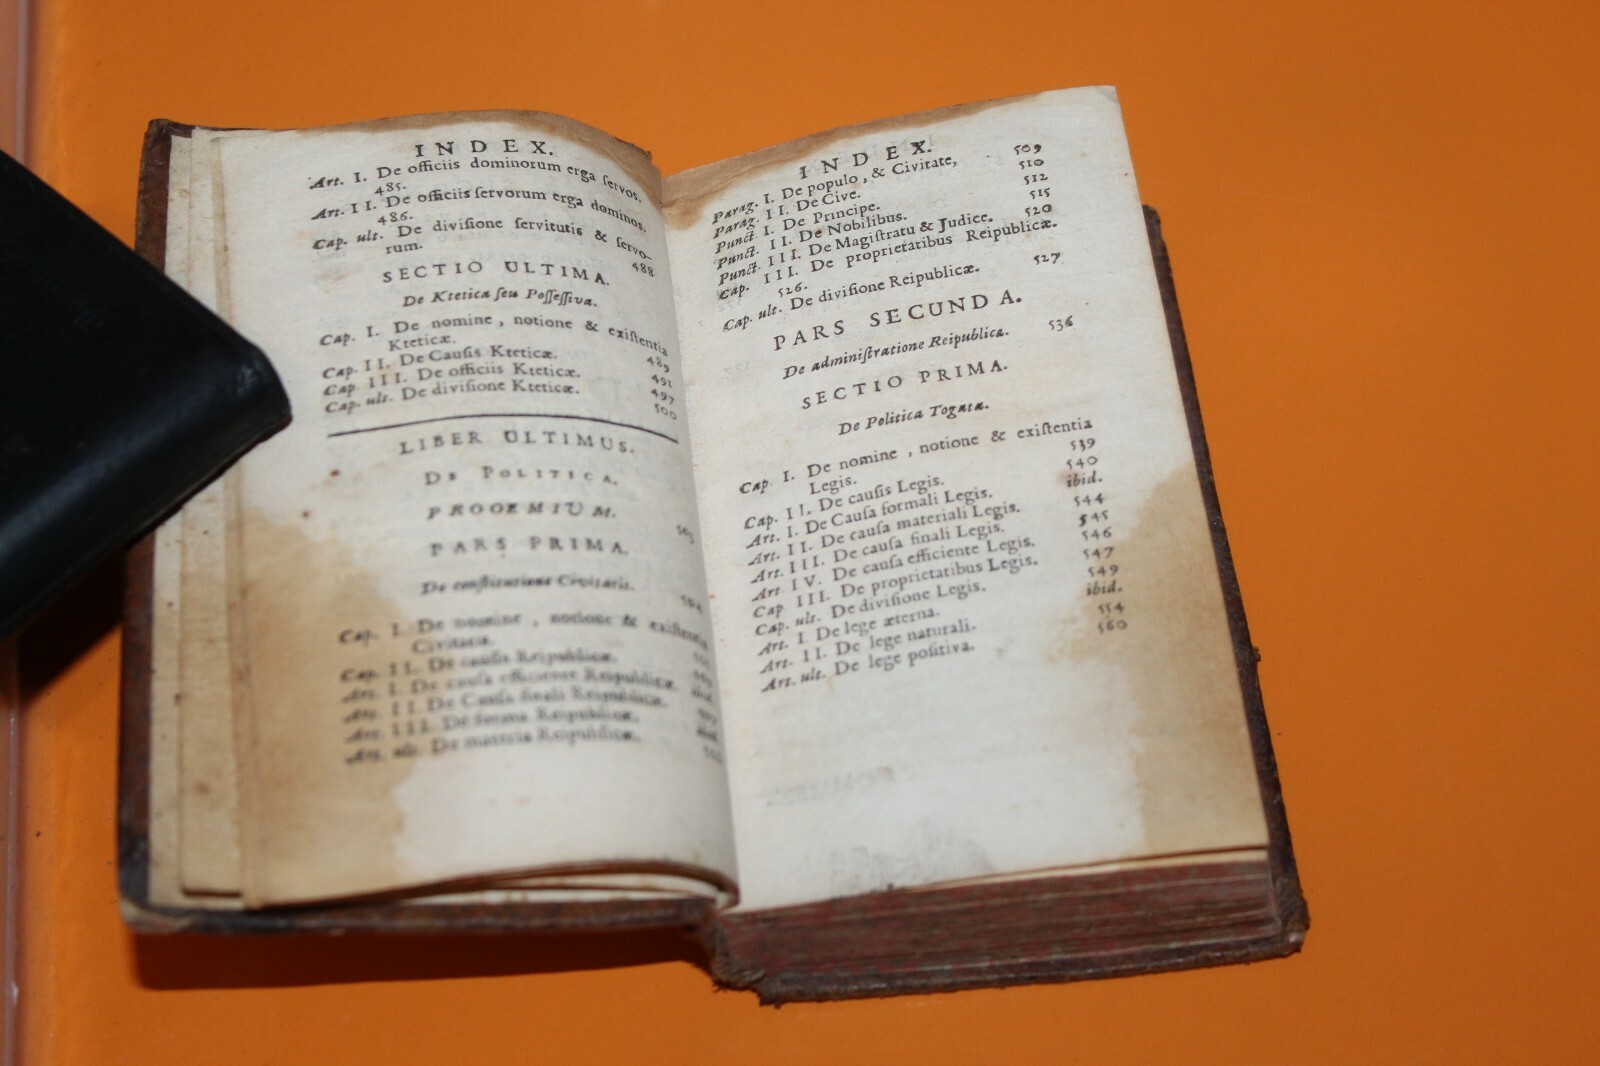 INDEX.
Art. I. De officiis dominorum erga ſervos.
485.
Art. II. De officiis ſervorum erga dominos.
486.
Cap. ult. De diviſione ſervitutis & ſervo-
rum. 488
SECTIO ULTIMA.
De Ktetica ſeu Poſſeſſiva.
Cap. I. De nomine, notione & exiſtentia
Kteticæ. 489
Cap. II. De Cauſis Kteticæ. 491
Cap. III. De officiis Kteticæ. 497
Cap. ult. De diviſione Kteticæ. 500
LIBER ULTIMUS.
DE POLITICA.
PROOEMIUM. 503
PARS PRIMA.
De conſtitutione Civitatis. 504
Cap. I. De nomine, notione & exiſtentia
Civitatis.
Cap. II. De cauſis Reipublicæ.
Art. I. De cauſa efficiente Reipublicæ. ibid.
Art. II. De Cauſa finali Reipublicæ.
Art. III. De forma Reipublicæ. ibid.
Art. ult. De materia Reipublicæ.
INDEX.
Parag. I. De populo, & Civitate, 509
Parag. II. De Cive. 510
Punct. I. De Principe. 512
Punct. II. De Nobilibus. 515
Punct. III. De Magiſtratu & Judice. 520
Cap. III. De proprietatibus Reipublicæ.
526.
Cap. ult. De diviſione Reipublicæ. 527
PARS SECUNDA.
De adminiſtratione Reipublicæ. 536
SECTIO PRIMA.
De Politica Togata.
Cap. I. De nomine, notione & exiſtentia
Legis. 539
Cap. II. De cauſis Legis. 540
Art. I. De Cauſa formali Legis. ibid.
Art. II. De cauſa materiali Legis. 544
Art. III. De cauſa finali Legis. 545
Art. IV. De cauſa efficiente Legis. 546
Cap. III. De proprietatibus Legis. 547
Cap. ult. De diviſione Legis. 549
Art. I. De lege æterna. ibid.
Art. II. De lege naturali. 554
Art. ult. De lege poſitiva. 560